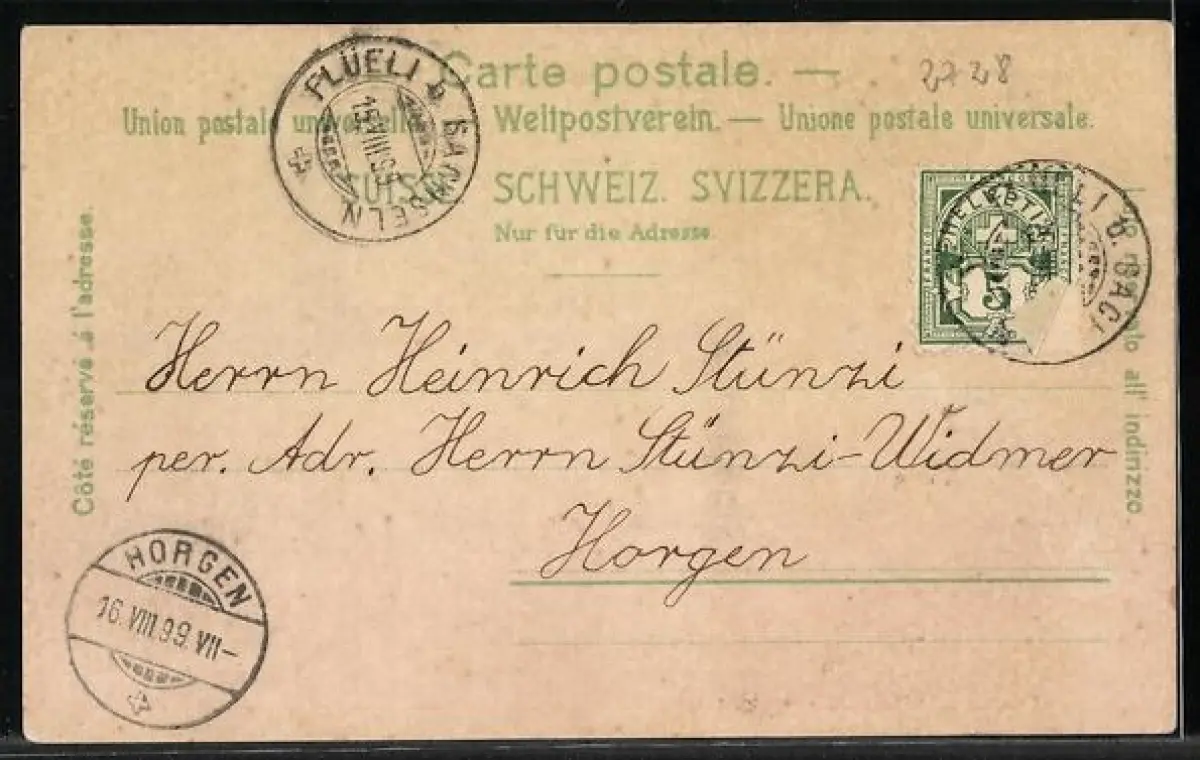 Carte postale. —
2728
Union postale universelle. — Weltpostverein. — Unione postale universale.
SUISSE. SCHWEIZ. SVIZZERA.
Nur für die Adresse.
FLÜELI b. SACHSELN
15.VIII.99
HELVETIA
FRANCO
5
LI b. SACH
Côté réservé à l'adresse.
lato all' indirizzo.
Herrn Heinrich Stünzi
per. Adr. Herrn Stünzi-Widmer
Horgen
HORGEN
16.VIII.99.VII—